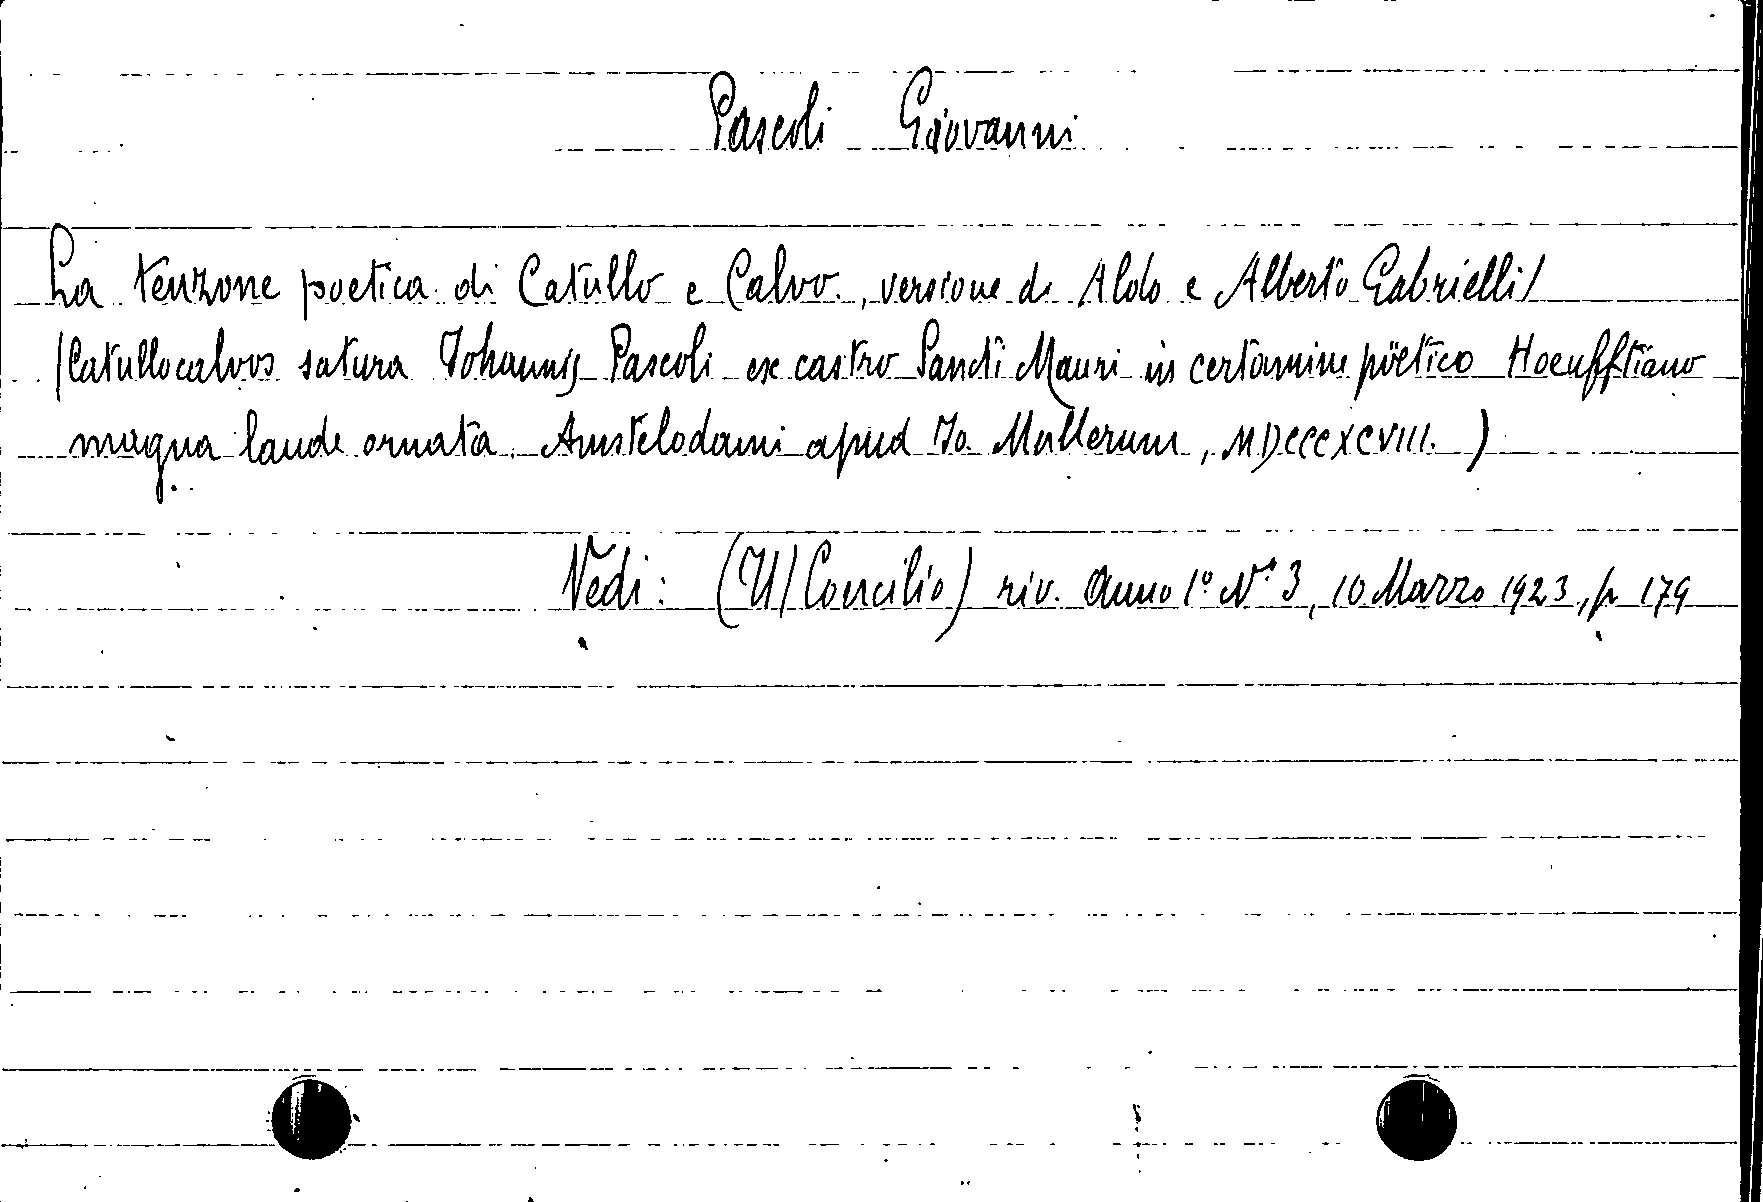 Pascoli Giovanni
La tenzone poetica di Catullo e Calvo., versione di Aldo e Alberto Gabrielli/
(Catullocalvos satura Johannis Pascoli ex castro Sancti Mauri in certamine pöetico Hoeufftiano
magna laude ornata. Amstelodami apud Io. Mullerum, MDCCCXCVIII.)
Vedi: (Il Concilio) riv. Anno 1º Nº 3, 10 Marzo 1923, p 179